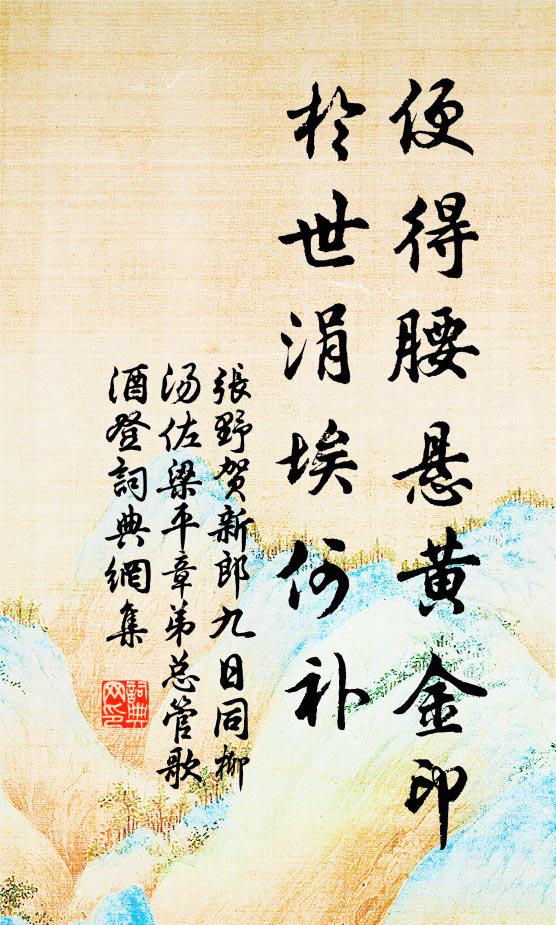 便得腰悬黄金印
於世涓埃何补
張野贺新郎九日同柳
汤佐梁平章弟总管歌
酒登詞典網集
詞典
网印